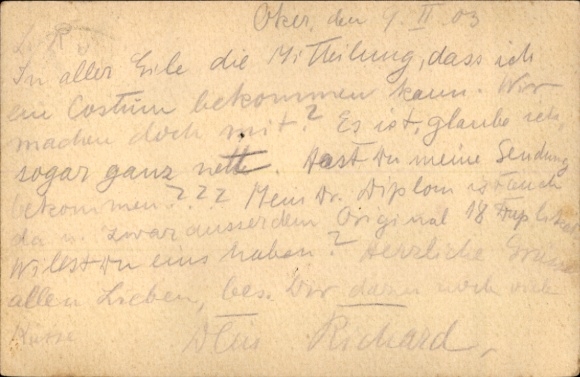 Oker, den 9. II. 03
L. R
In aller Eile die Mittheilung, dass ich
ein Costüm bekommen kann. Wir
machen doch mit? Es ist, glaube ich,
sogar ganz nett. Hast Du meine Sendung
bekommen??? Mein Dr. Diplom ist auch
da u. zwar ausserdem Original 18 Duplikate
Willst Du eins haben? Herzliche Grüsse
allen Lieben, bes. Dir dazu noch viele
Küsse
Dein Richard.